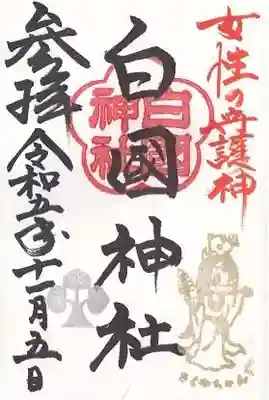 女性の守護神
白國神社
白國
神社
参拝
令和五年十一月五日